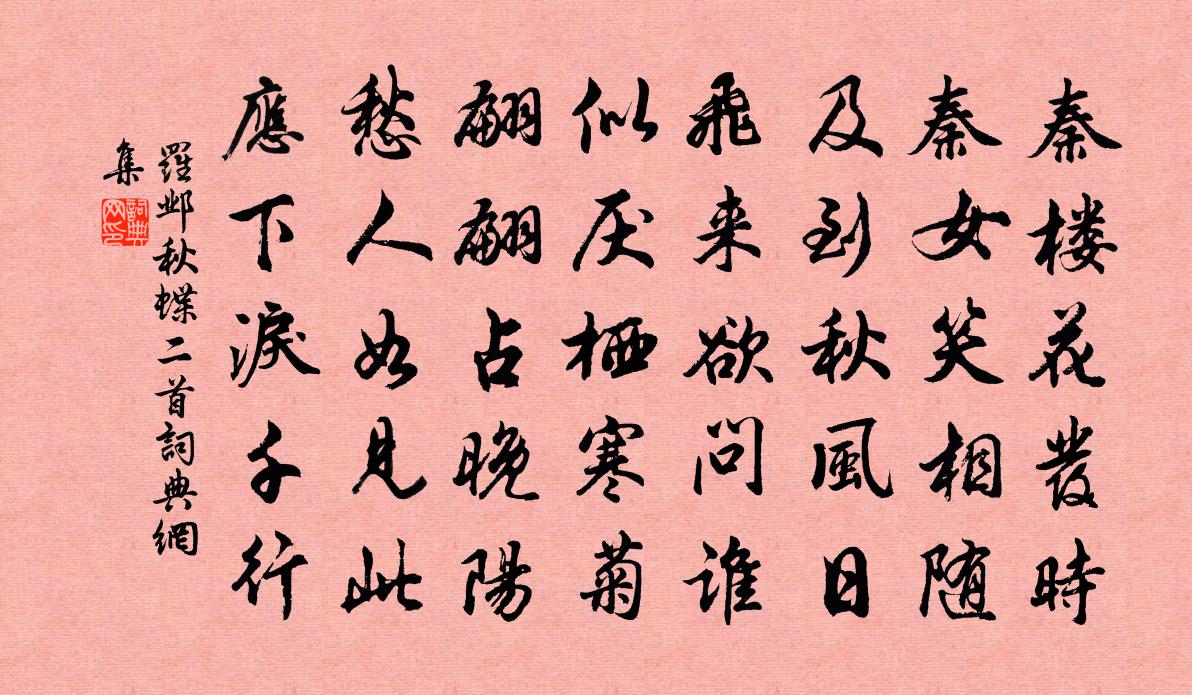 秦楼花發時
秦女笑相随
及到秋風日
飛来欲問谁
似厌栖寒菊
翩翩占晚陽
愁人如見此
應下淚千行
羅邺秋蝶二首詞典網
集
詞典网印